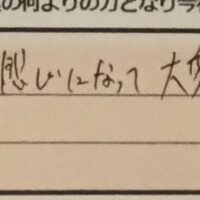 の何よりの力となり今
感じになって 大